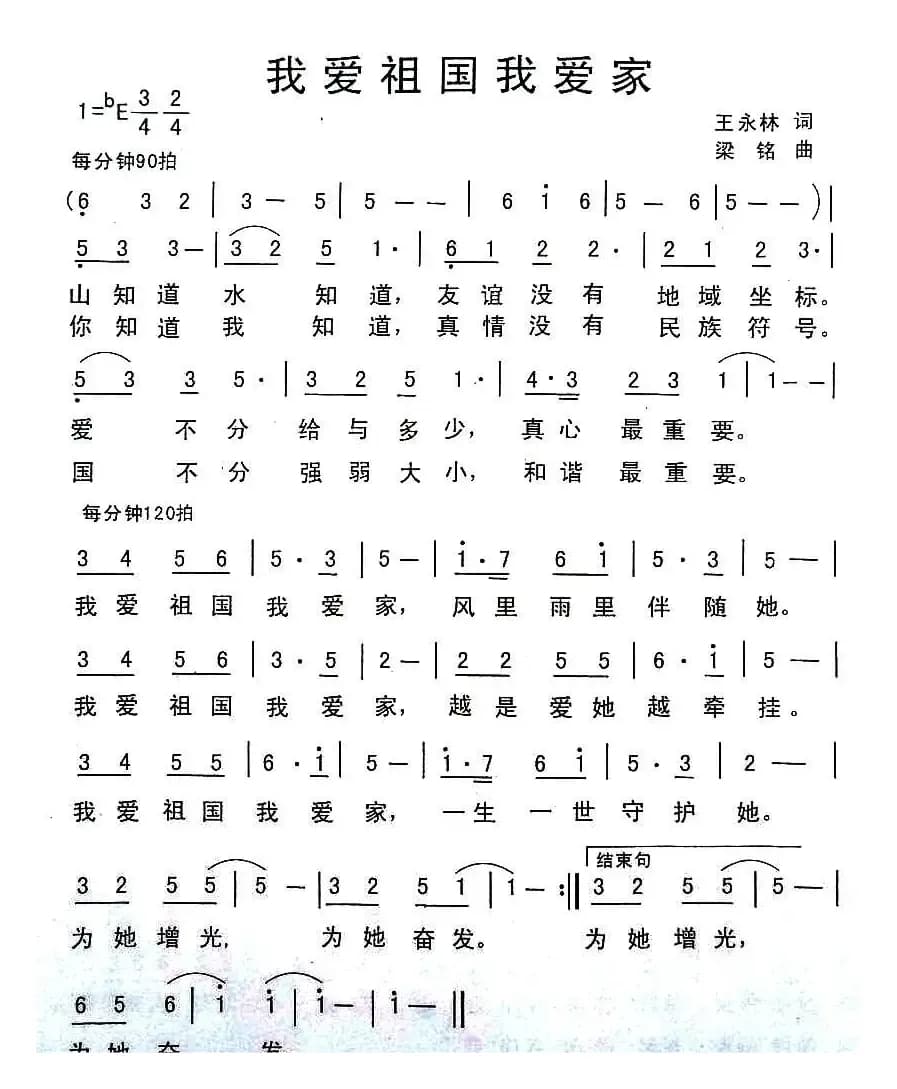 我爱祖国我爱家
1=ᵇE 3/4 2/4
王永林 词
每分钟90拍
梁铭 曲
(6̣ 3 2 | 3 — 5 | 5 — — | 6 i̇ 6 | 5 — 6 | 5 — — ) |
5̣ 3 3 — | 3 2 5 1· | 6̣ 1 2 2· | 2 1 2 3· |
山知道水 知道，友谊没有 地域坐标。
你知道我 知道，真情没有 民族符号。
5̣ 3 3 5· | 3 2 5 1· | 4·3 2 3 1 | 1 — — |
爱 不分 给与多少，真心 最重要。
国 不分 强弱大小，和谐 最重要。
每分钟120拍
3 4 5 6 | 5·3 | 5 — | i̇·7 6 i̇ | 5·3 | 5 — |
我爱 祖国 我爱家，风里 雨里 伴随她。
3 4 5 6 | 3·5 | 2 — | 2 2 5 5 | 6·i̇ | 5 — |
我爱 祖国 我爱家，越是 爱她 越牵挂。
3 4 5 5 | 6·i̇ | 5 — | i̇·7 6 i̇ | 5·3 | 2 — |
我爱 祖国 我爱家，一生 一世 守护她。
结束句
3 2 5 5 | 5 — | 3 2 5 1 | 1 — :‖ 3 2 5 5 | 5 — |
为她增光，为她奋发。为她增光，
6 5 6 i̇ | i̇ | i̇ — | i̇ — ‖
为她奋 发